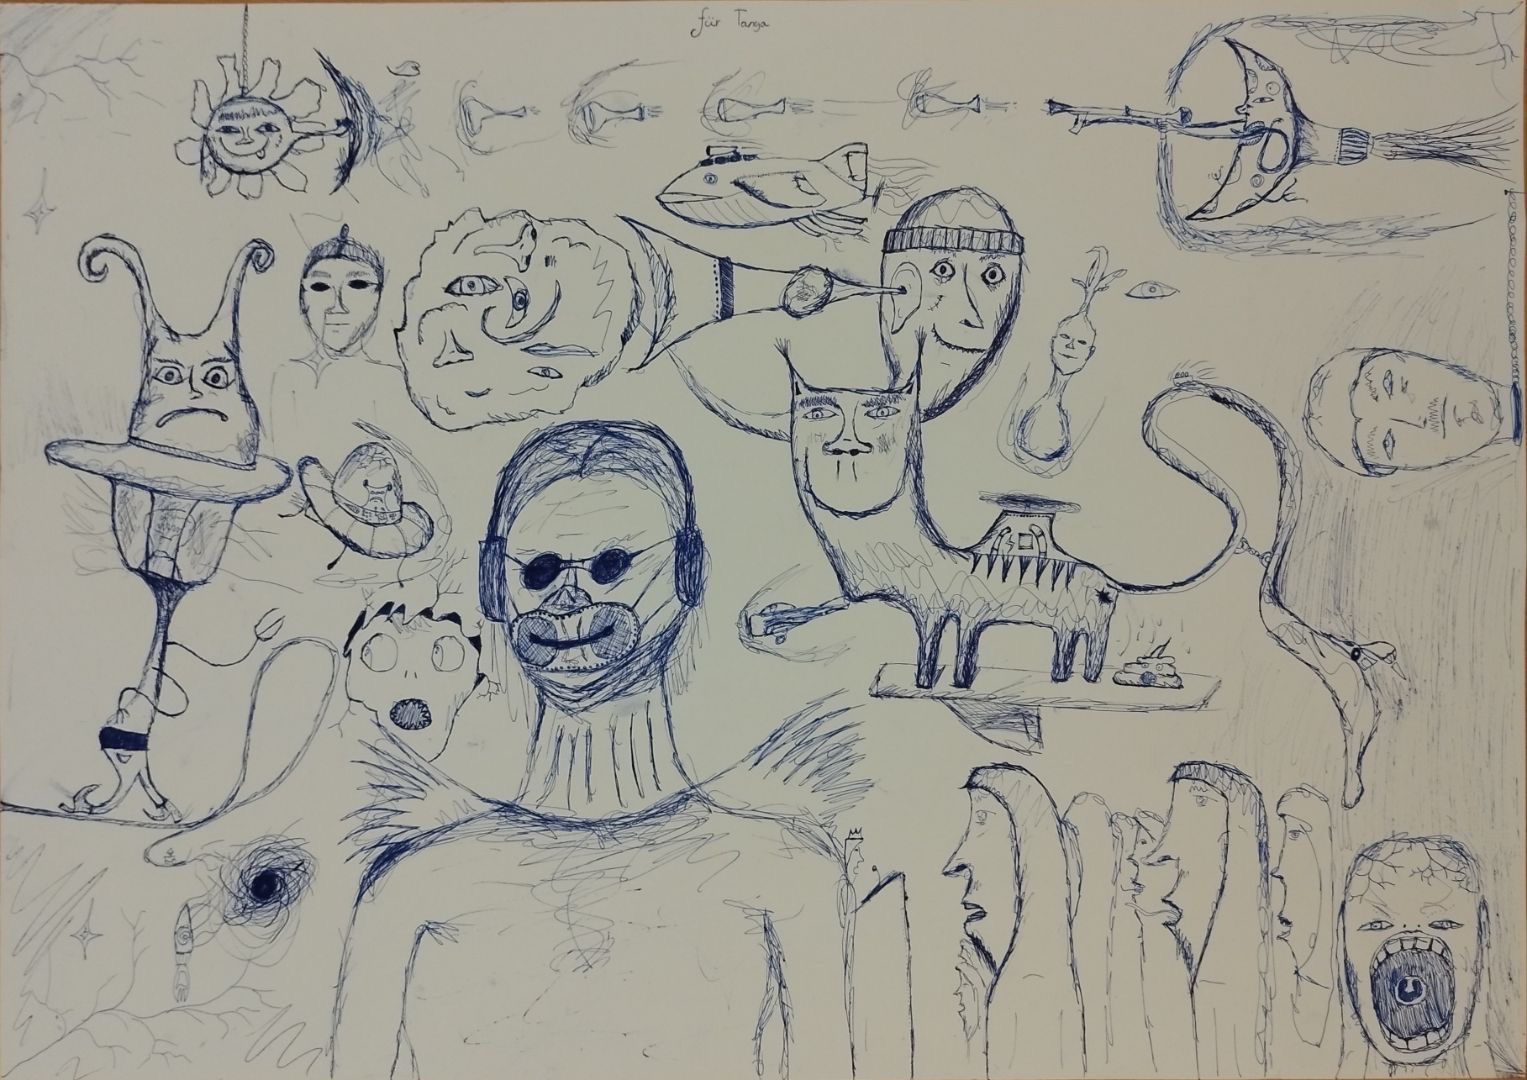 für Tanga